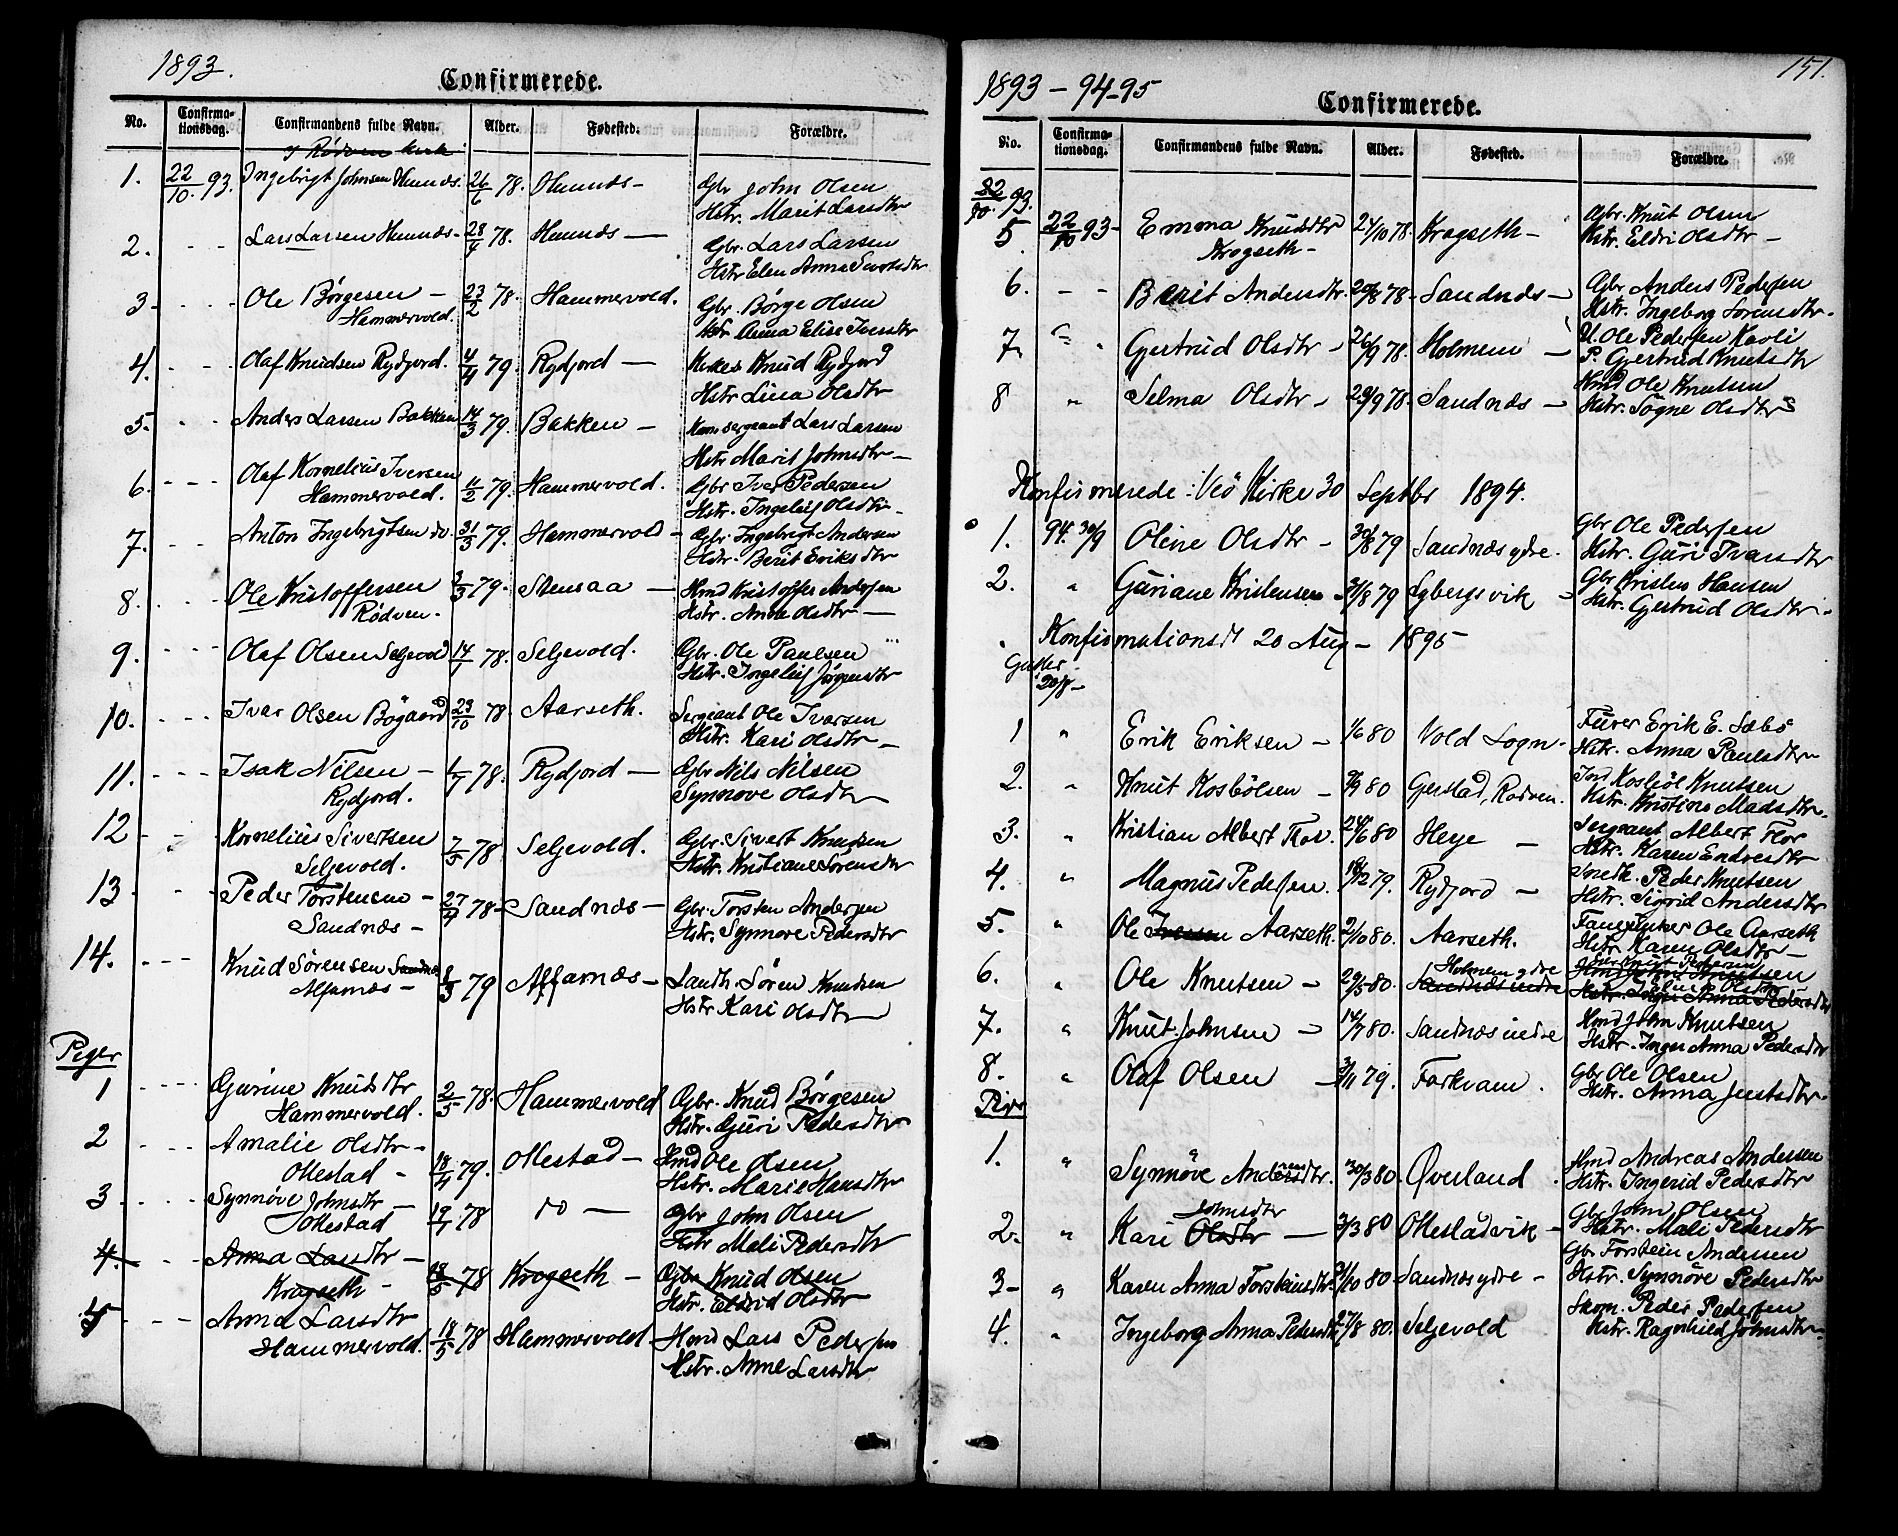 1893.
Confirmerede.
No. Confirmationsdag. Confirmandens fulde Navn. Alder. Fødested. Forældre.
i Rødven Kirk
1. 22/10 93. Ingebrigt Johnsen Hunnæs. 26/6 78. Hunnæs - Gbr John Olsen
Hstr. Marit Larsdtr
2. - - Lars Larsen Hunnæs - 28/4 78. Hunnæs - Gbr. Lars Larsen
Hstr Elen Anna
3 - - - Ole Børgesen - 23/2 78. Hammervold. Gbr. Børge Olsen
Hammervold. Hstr Anna Elise Iversdtr
4. - - Olaf Knudsen Rydjord. 4/4 79 Rydjord - Knud Rydjord
Hstr Lina Olsdtr
5. - - Anders Larsen Bakken 14/3 79. Bakken - Kom sergeant Lars Larsen
Hstr Marit Johnsdtr -
6. - - - Olaf Kornelius Iversen 11/2 79. Hammervold. Gbr Iver Pedersen
Hammervold. Hstr. Ingeleif Olsdtr -
7. - - - Anton Ingebrigtsen do. 31/3 79. Hammervold - Gbr. Ingebrigt Andersen
Hstr. Berit Eriksdtr
8. - - - Ole Kristoffersen 79. Stensaa - Hmd Kristoffer Andersen
Rødven. Hstr. Anna Olsdtr -
9. - - - Olaf Olsen Seljevold 14/1 78. Seljevold. Gbr. Ole Paulsen
Hstr. Ingeleif Jørgensdtr
10. - - - Ivar Olsen Bøgaard 23/10 78. Aarseth. Sergeant Ole Ivarsen
Hstr. Kari Olsdtr -
11. - - - Isak Nilsen - 1/7 78. Rydjord - Gbr Nils Nilsen
Rydjord. Synnøve Olsdtr -
12 - - Kornelius Sivertsen 7/5 78 Seljevold. Gbr. Sivert Knutsen
Seljevold. Hstr. Kristiane Sørensdtr
13. - - Peder Torstensen - 27/7 78 - Sandnæs - Gbr. Torsten Andersen
Sandnæs - Hstr. Synnøve Pedersdtr
14. - - - Knud Sørensen Sandnæs 8/3 79 Alfarnæs - Landh. Søren Knudsen
Alfarnæs - Hstr Kari Olsdtr
Piger
1 - - - Gurine Knudsdtr 2/5 78. Hammervold Gbr. Knud Børgesen
Hammervold. Hstr. Guri Pedersdtr
2 - - - Amalie Olsdtr - 18/4 79. Ottestad - Hmd Ole Olsen
Ottestad - Hstr. Marie Hansdtr
3 - - - Synnøve Johnsdtr - 19/1 78 do - Gbr John Olsen
Ottestad Hstr Mali Pedersdtr
4. - - - Anna Larsdtr - 18/5 78 Krogseth - Gbr. Knud Olsen
Krogseth - Hstr. Eldrid Olsdtr
- - - Anna Larsdtr 18/5 78 Hammervold - Hmd Lars Pedersen
Hammervold. Hstr. Anne Larsdtr
151.
1893 - 94 - 95
Confirmerede.
No. Confirmationsdag. Confirmandens fulde Navn. Alder. Fødested. Forældre.
22/10. 93.
5 22/10 93 - Emma Knudsdtr 24/10 78. Krogseth - Gbr. Knut Olsen
Krogseth - Hstr. Eldri Olsdtr -
6. - - Berit Andersdtr. 78 - Sandnæs - Gbr Anders Pedersen
Hstr. Ingeborg Sørensdtr.
7 Gjertrud Olsdtr - 26/9 78. Holmem - U. Ole Pedersen Kavli
P. Gjertrud Knutsdtr
8 " Selma Olsdtr - 29/9 78. Sandnæs - Hmd Ole Knutsen
Hstr. Søgne Olsdtr
Konfirmerede i Veø Kirke 30 Septbr 1894.
1. 94. 30/9 Oline Olsdtr - 30/8 79 Sandnæs ydre. Gbr Ole Pedersen
Hstr. Guri Ivarsdtr
2. " Guriane Kristensen - 31/8 79 Sybergsvik - Gbr Kristen Hansen
Hstr. Gjertrud Olsdtr -
Konfirmationsdt 20 Aug - 1895
Gutter
20/8 -
1 " Erik Eriksen - 1/6 80 Vold Sogn - Furer Erik E. Sæbø
Hstr. Anna Paulsdtr
2. " Knut Kosbølsen - 80 Gjerstad, Rødven. Kosbøl Knutsen
Hstr. Kristine Madsdtr.
3. " Kristian Albert Flor. 24/6 80 Heye - Sergeant Albert Flor
Hstr. Karen Endresdtr
4. " Magnus Pedersen. 18/12 79. Rydjord - Smedk. Peder Knutsen
Hstr. Sigrid Andersdtr
5. " Ole Iversen Aarseth. 2/10 80. Aarseth. Ole Aarseth
Hstr. Karen Olsdtr -
6. " Ole Knutsen - 29/5 80. Holmem ydre Knut Pedersen
Sandnæs indre
7. " Knut Johnsen - 14/7 80. Sandnæs indre Hmd John Knutsen
Hstr. Inger Anna Pedersdtr
8. " Olaf Olsen - 3/11 79. Torkvam. Gbr Ole Olsen
Hstr. Anna Justsdtr.
Piger
1. " Synnøve Andersdtr. 30/3 80 Øverland. Hmd Andreas Andersen
Hstr. Ingerid Pedersdtr
2. " Kari Olsdtr - 3/3 80 Ottestadvik - Gbr John Olsen
Johnsdtr Hstr. Mali Pedersdtr
3 - " Karen Anna Torsteinsdtr 80 Sandnæs ydre - Gbr Torstein Andersen
Hstr. Synnøve Pedersdtr
4. " Ingeborg Anna Pedersdtr 27/8 80. Seljevold Skom. Peder Pedersen
Hstr. Ragnhild Johnsdtr.